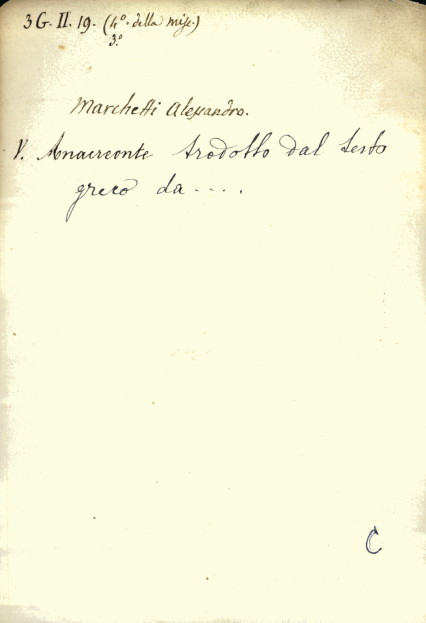 3 G. II. 19. (4º. della misc.)
3º
Marchetti Alessandro.
V. Anacreonte tradotto dal testo
greco da ....
C